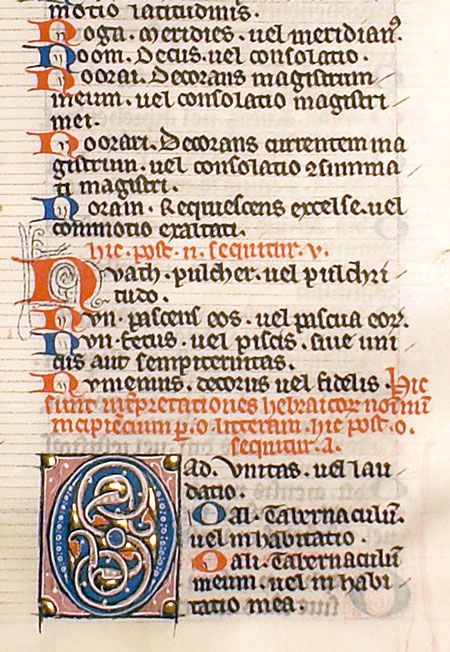 motio latitudinis.
Noga. Meridies. uel meridian⁹
Noom. Decus. uel consolatio.
Noorai. Decorans magistrum
meum. uel consolatio magistri
mei.
Noorari. Decorans currentem ma
gistrum. uel consolatio
ti magistri.
Noram. Requiescens excelse. uel
commotio exaltati.
hic. post. n. sequitur. v.
Nvath. pulcher. uel pulchri
tudo.
Nvn. pascens eos. uel pascua eoꝝ.
Nvn. fetus. uel piscis. siue uni
cus aut sempiternitas.
Nvmenius. decorus uel fidelis. hic
sunt inꝑretationes hebraicoꝝ noīnū
incipiēcium ꝑ. o. litteram. hic post. o.
sequitur. a.
Oad. Vnitas. uel lau
datio.
Oal. Tabernaculū.
uel inhabitatio.
Oali. Tabernaculū
meum. uel inhabi
tatio mea.